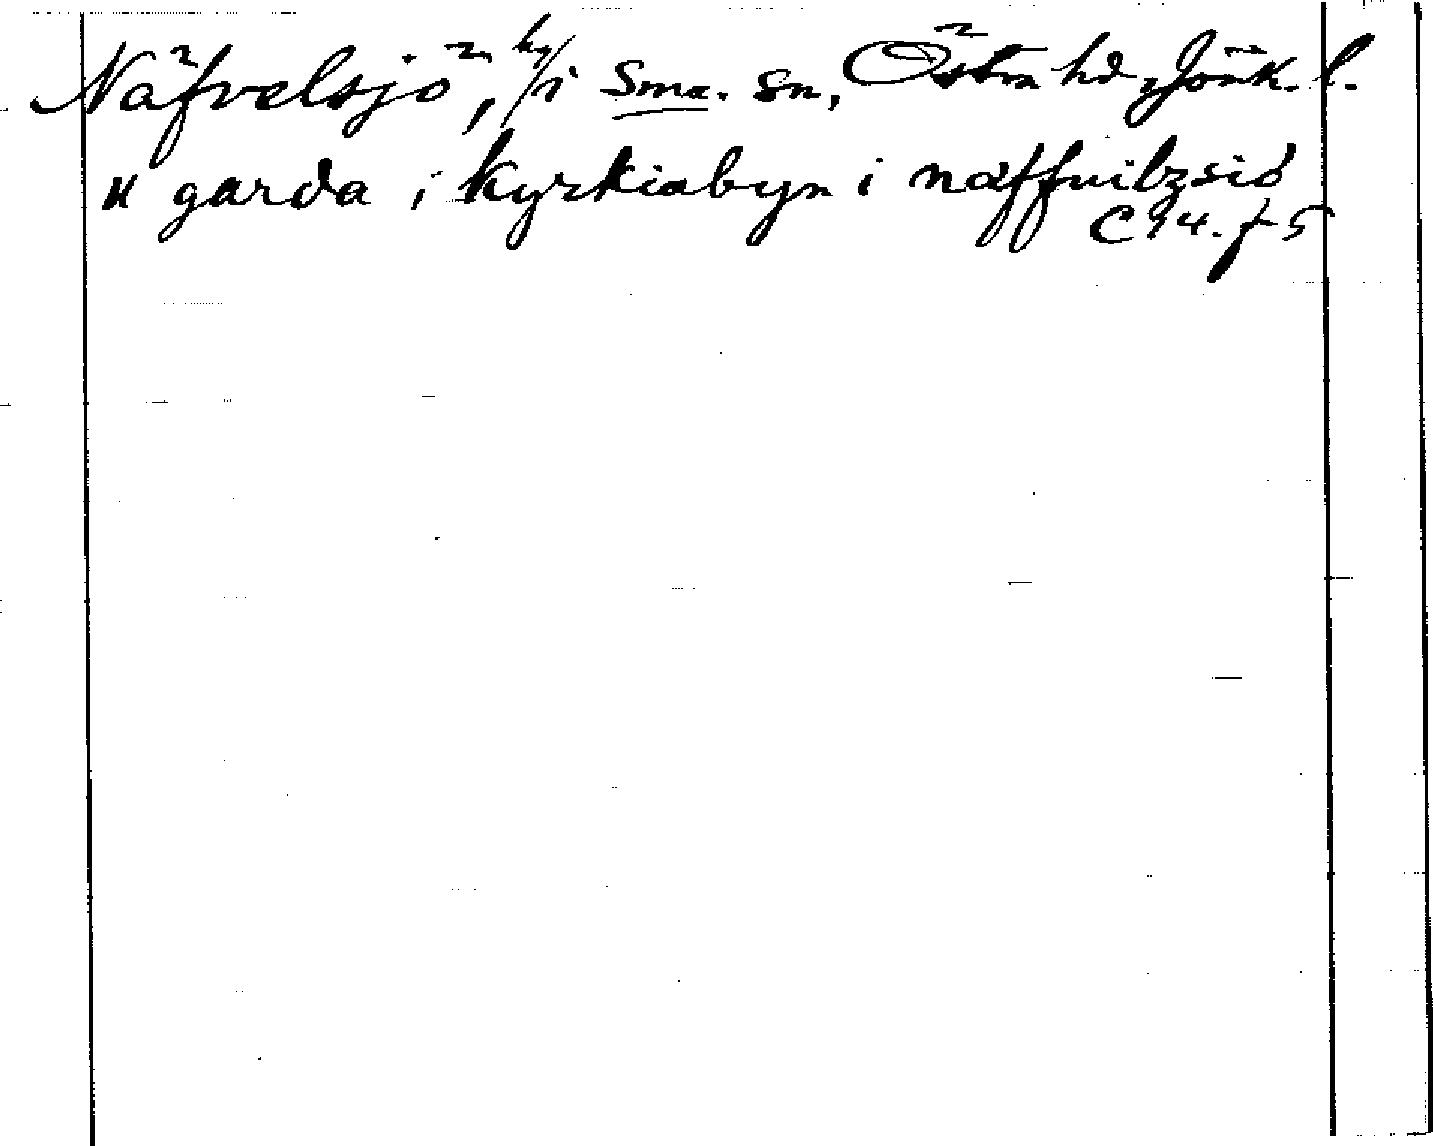 Näfvelsjö, by i Sma. sn, Östra hd, Jönk. l.
ɪɪ garda i kyrkiabyn i näffuilzsiö
C 94. f 5